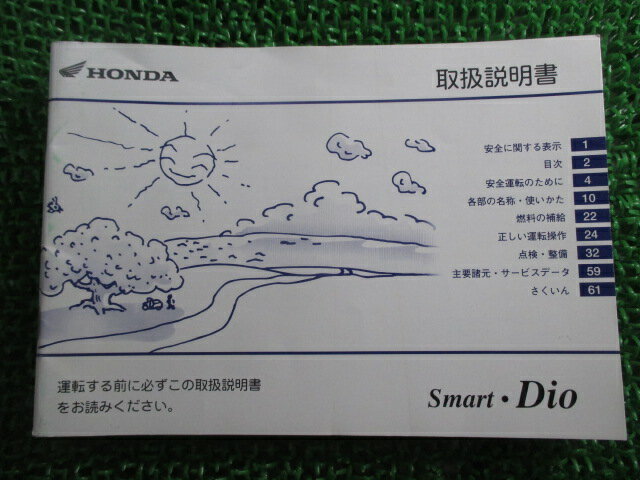 HONDA
取扱説明書
安全に関する表示 1
目次 2
安全運転のために 4
各部の名称・使いかた 10
燃料の補給 22
正しい運転操作 24
点検・整備 32
主要諸元・サービスデータ 59
さくいん 61
運転する前に必ずこの取扱説明書
をお読みください。
Smart・Dio